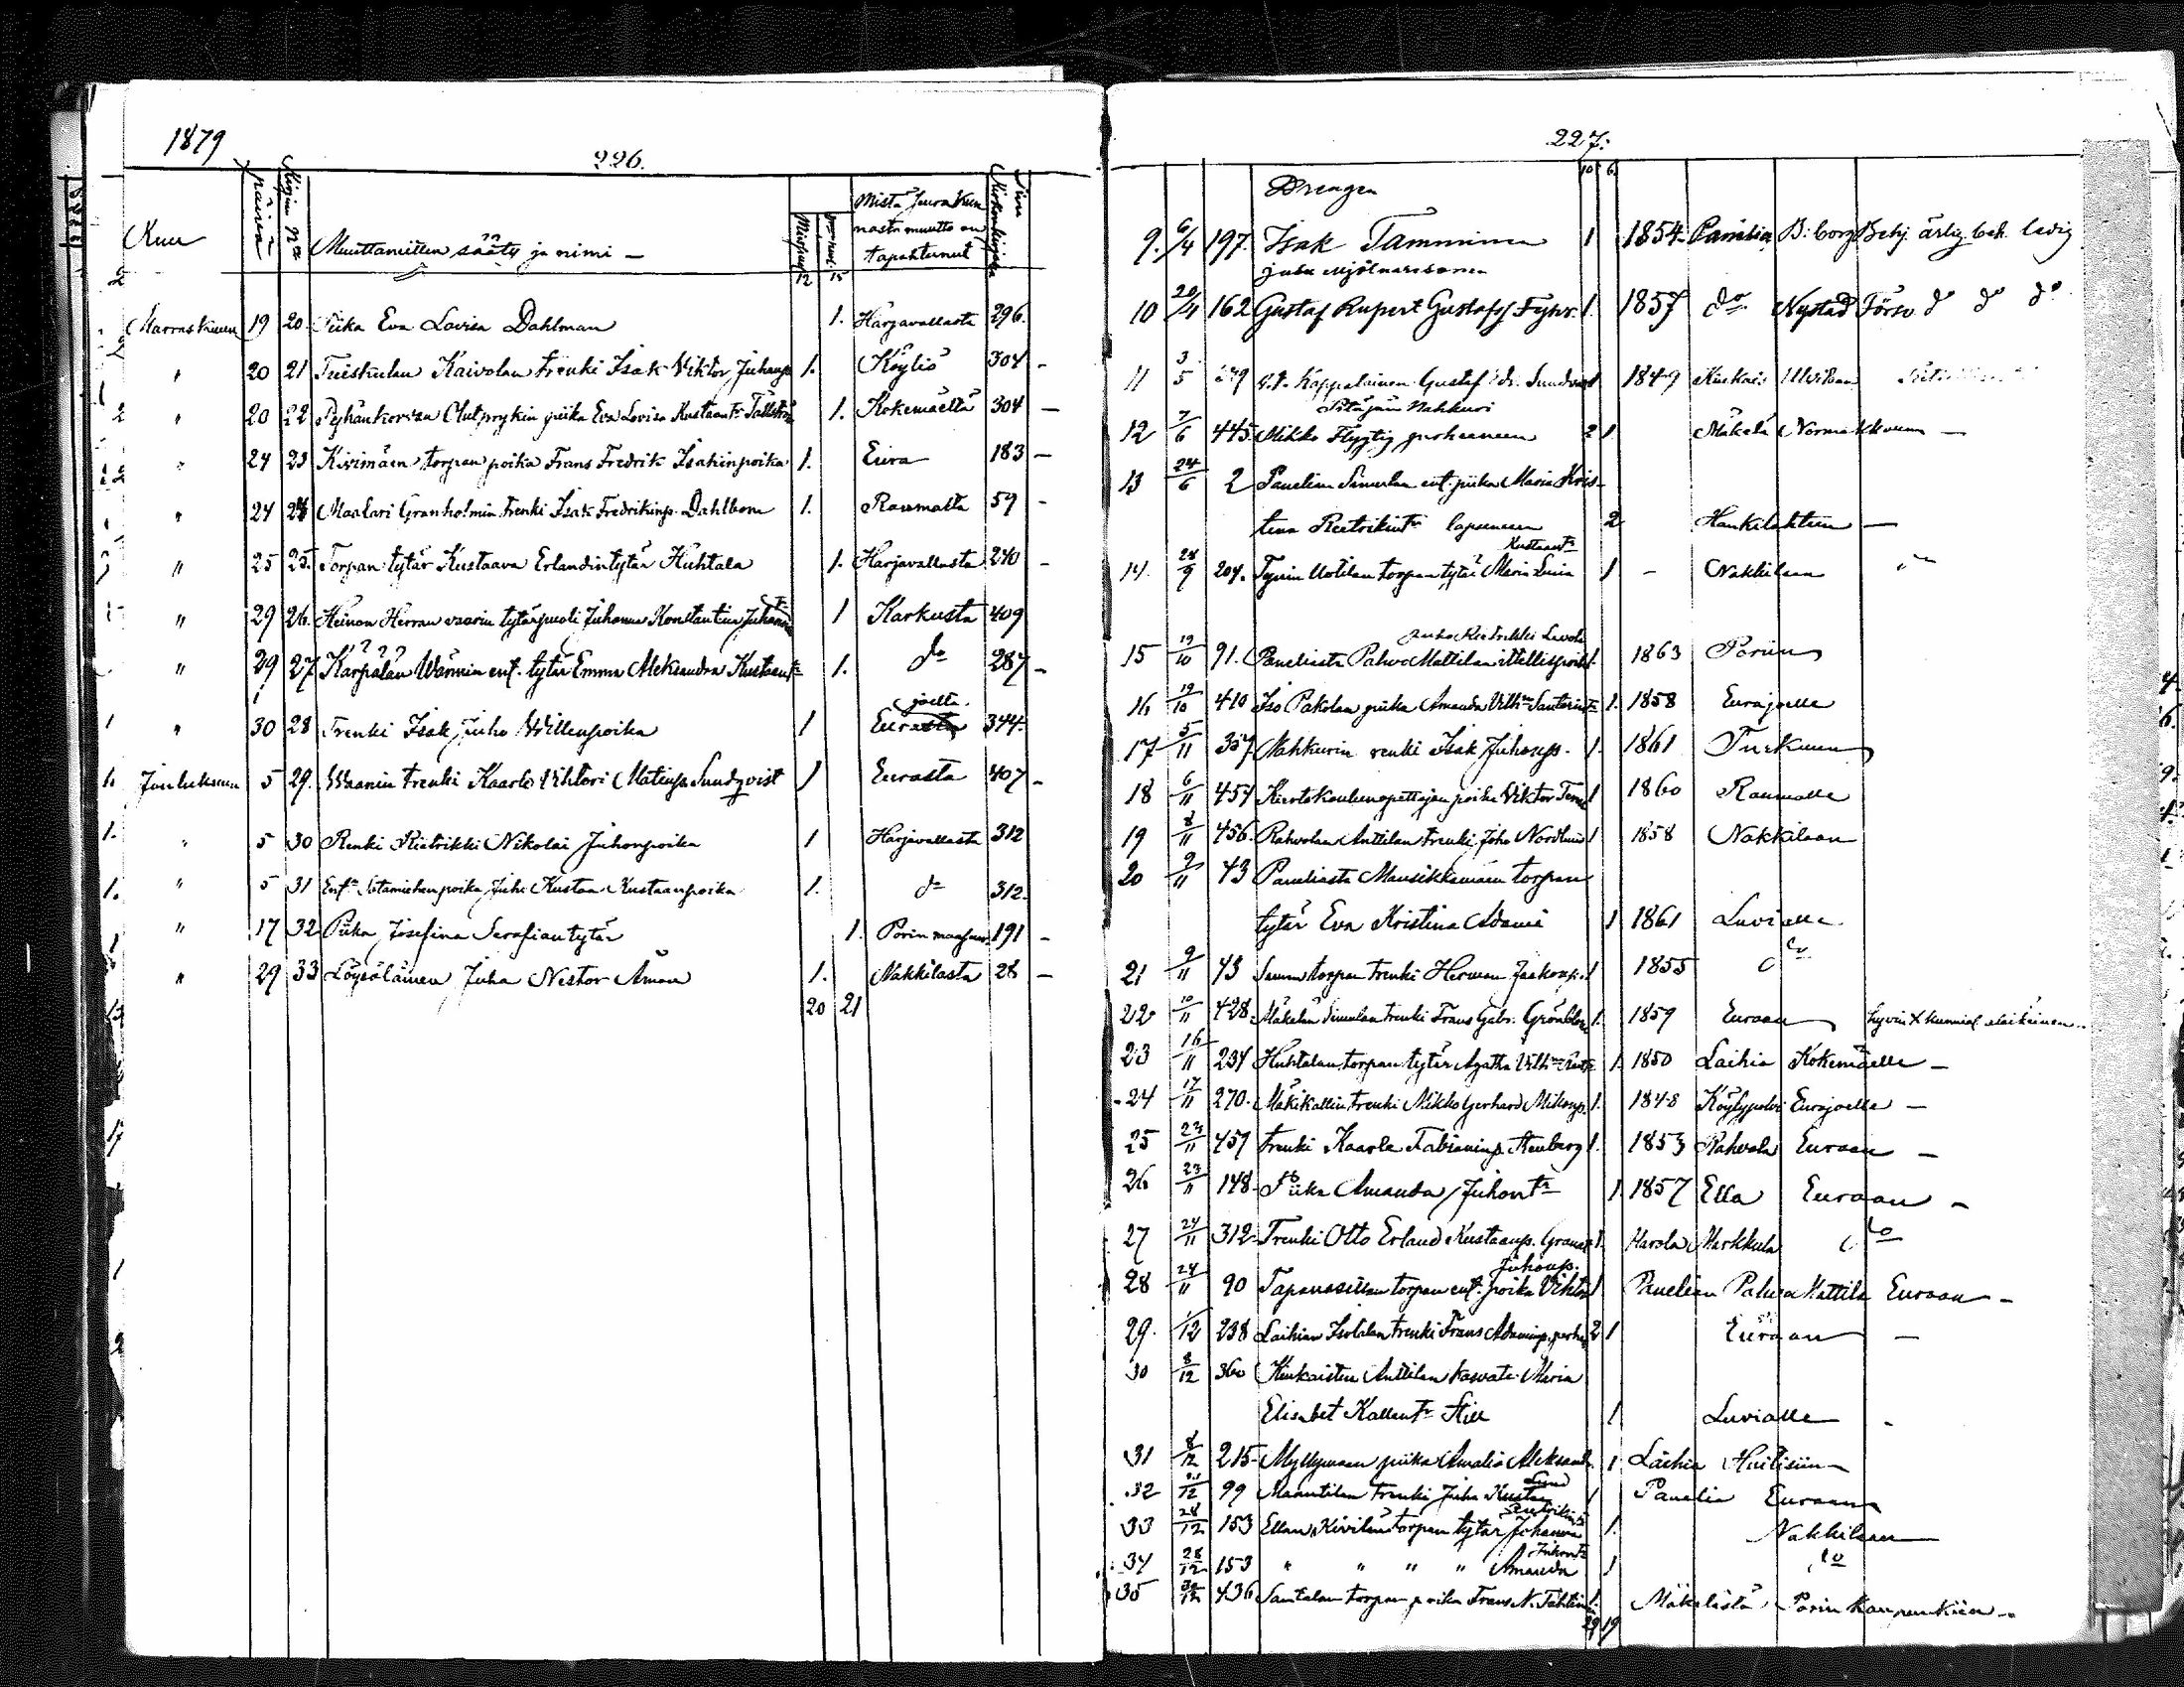 1879
226.
Kuu päivä Kirjan No Muuttamitten sääty ja nimi Miesp. Vaimop. Mistä seurakunnasta muutto on tapahtunut Sivu Kirkonkirjassa
12 15
Marraskuun 19 20 Piika Eva Lovisa Dahlman 1. Harjavallasta 296.
" 20 21 Tuiskulan Kaivolan trenki Isak Viktor Juhanp. 1. Köyliö 304 -
" 20 22 Pyhänkorvan Olutprykin piika Eva Lovisa Kustaantr 1. Kokemäeltä 304 -
" 24 23 Kivimäen torpan poika Frans Fredrik Isakinpoika 1. Eura 183 -
" 24 24 Maalari Granholmin trenki Isak Fredrikinp. Dahlbom 1. Raumalta 59 -
" 25 25. Torpan tytär Kustaava Erlandintytär Huhtala 1. Harjavallasta 240 -
" 29 26. Heinon Herran vaarin tytärpuoli Juhanna Konstantia 1 Karkusta 409
" 29 27 Karpalan Wännin ent. tytär Emma Aleksandra Kustaantr 1. do 287 -
joelta
" 30 28 Trenki Isak Juho Willenpoika 1 Eurasta 344.
Joulukuun 5 29. Waanin trenki Kaarlo Vihtori Matinp. Sundqvist 1 Eurasta 407 -
" 5 30 Renki Rietrikki Nikolai Juhonpoika 1 Harjavallasta 312
" 5 31 Ent. Sotamiehen poika Juho Kustaa Kustaanpoika 1. do 312.
" 17 32 Piika Josefina Serafiantytär 1. Porin maaseur. 191 -
" 29 33 Löysäläinen Juha Nestor Åman 1. Nakkilasta 28 -
20 21
227.
10 6
Drengen
9. 6/4 197. Isak Tamminen 1 1854. Panelia B:borg Behj. ärlig bek. ledig
10 20/4 162 Gustaf Rupert Gustafss. 1. 1857 do Nystad Försv. do do do
11 3/5 279 v.t. Kappalainen Gustaf 1 1849 Ulvilaan
Pitäjän Nahkuri
12 7/6 445. Mikko Flygtig perheineen 2 1. Mäkelä Normarkkuun -
13 24/6 2 Panelian Simulan ent. piika Maria Kris-
tina Rietrikintr lapsineen 2 Hankilahteen -
Kustaantr
14. 28/9 204. Tyvin Uotilan torpan tytär Maria Lusia 1 - Nakkilaan
15 19/10 91. Paneliasta Pahvo Mattilan itellispoika 1. 1863 Poriin
16 19/10 410 Iso Pakolan piika Amanda Vilh:na Santerintr 1. 1858 Eurajoelle
17 5/11 357 Nahkurin renki Isak Juhonp. 1. 1861 Turkuun
18 6/11 457 Kiertokoulunopettajan poika Viktor 1 1860 Raumalle
19 8/11 456. Rahvolan Anttilan trenki Juho Nordlund 1. 1858 Nakkilaan
20 9/11 43 Paneliasta Mansikkamäen torpan
tytär Eva Kristina Adami 1 1861 Luvialle
21 9/11 43 torpan trenki Herman Jaakonp. 1 1855 do
22 10/11 428. Mäkelän Simulan trenki Frans Gabr. Grönblom 1. 1859 Euraan hyvin X kunnial.
23 16/11 234 Huhtalan torpan tytär Agatha Vilh:na 1. 1850 Laihia Kokemäelle -
24 17/11 270. Mäkikallin trenki Mikko Gerhard Mikonp. 1. 1848 Köylypolvi Eurajoelle -
25 23/11 457 trenki Kaarle Fabianinp. Stenberg 1. 1853 Rahvola Euraan -
26 23/11 148. Piika Amanda Juhontr 1. 1857 Ella Euraan -
27 24/11 312. Trenki Otto Erland Kustaanp. 1. Harola Markkula do
Juhonp.
28 24/11 90 torpan ent. poika Vihtor 1 Panelian Pahva Mattila Euraan -
29. /12 238 Laihian Isotalon trenki Frans Adaminp. perhe 2 1 Euraan -
30 8/12 360 Kiukaisten Anttilan kasvati Maria
Elisabet Kallentr Still 1 Luvialle -
31 8/12 215. Myllymaan piika Amalia Aleksand. 1 Laihia Huitisiin -
Lund
32 /12 99 Maantilan trenki Juha Kustaa 1 Panelia Euraan
33 28/12 153 Ellan Kivilän torpan tytär Johanna 1. Nakkilaan
Juhontr
34 28/12 153 " " " " Amanda 1 do
35 /12 436 Santalan torpan poika Frans N. Tähtinen 1. Mäkelästä Porin kaupunkiin -
29 19